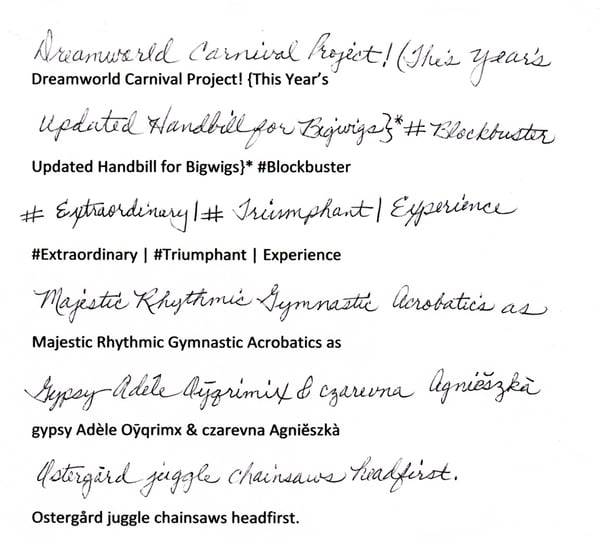 Dreamworld Carnival Project! (This Year's
Dreamworld Carnival Project! {This Year's
Updated Handbill for Bigwigs}* # Blockbuster
Updated Handbill for Bigwigs}* #Blockbuster
# Extraordinary | # Triumphant | Experience
#Extraordinary | #Triumphant | Experience
Majestic Rhythmic Gymnastic Acrobatics as
Majestic Rhythmic Gymnastic Acrobatics as
Gypsy Adèle Oÿqrimix & czarevna Agniĕszkà
gypsy Adèle Oŷqrimx & czarevna Agniĕszkà
Ostergård juggle chainsaws headfirst.
Ostergård juggle chainsaws headfirst.